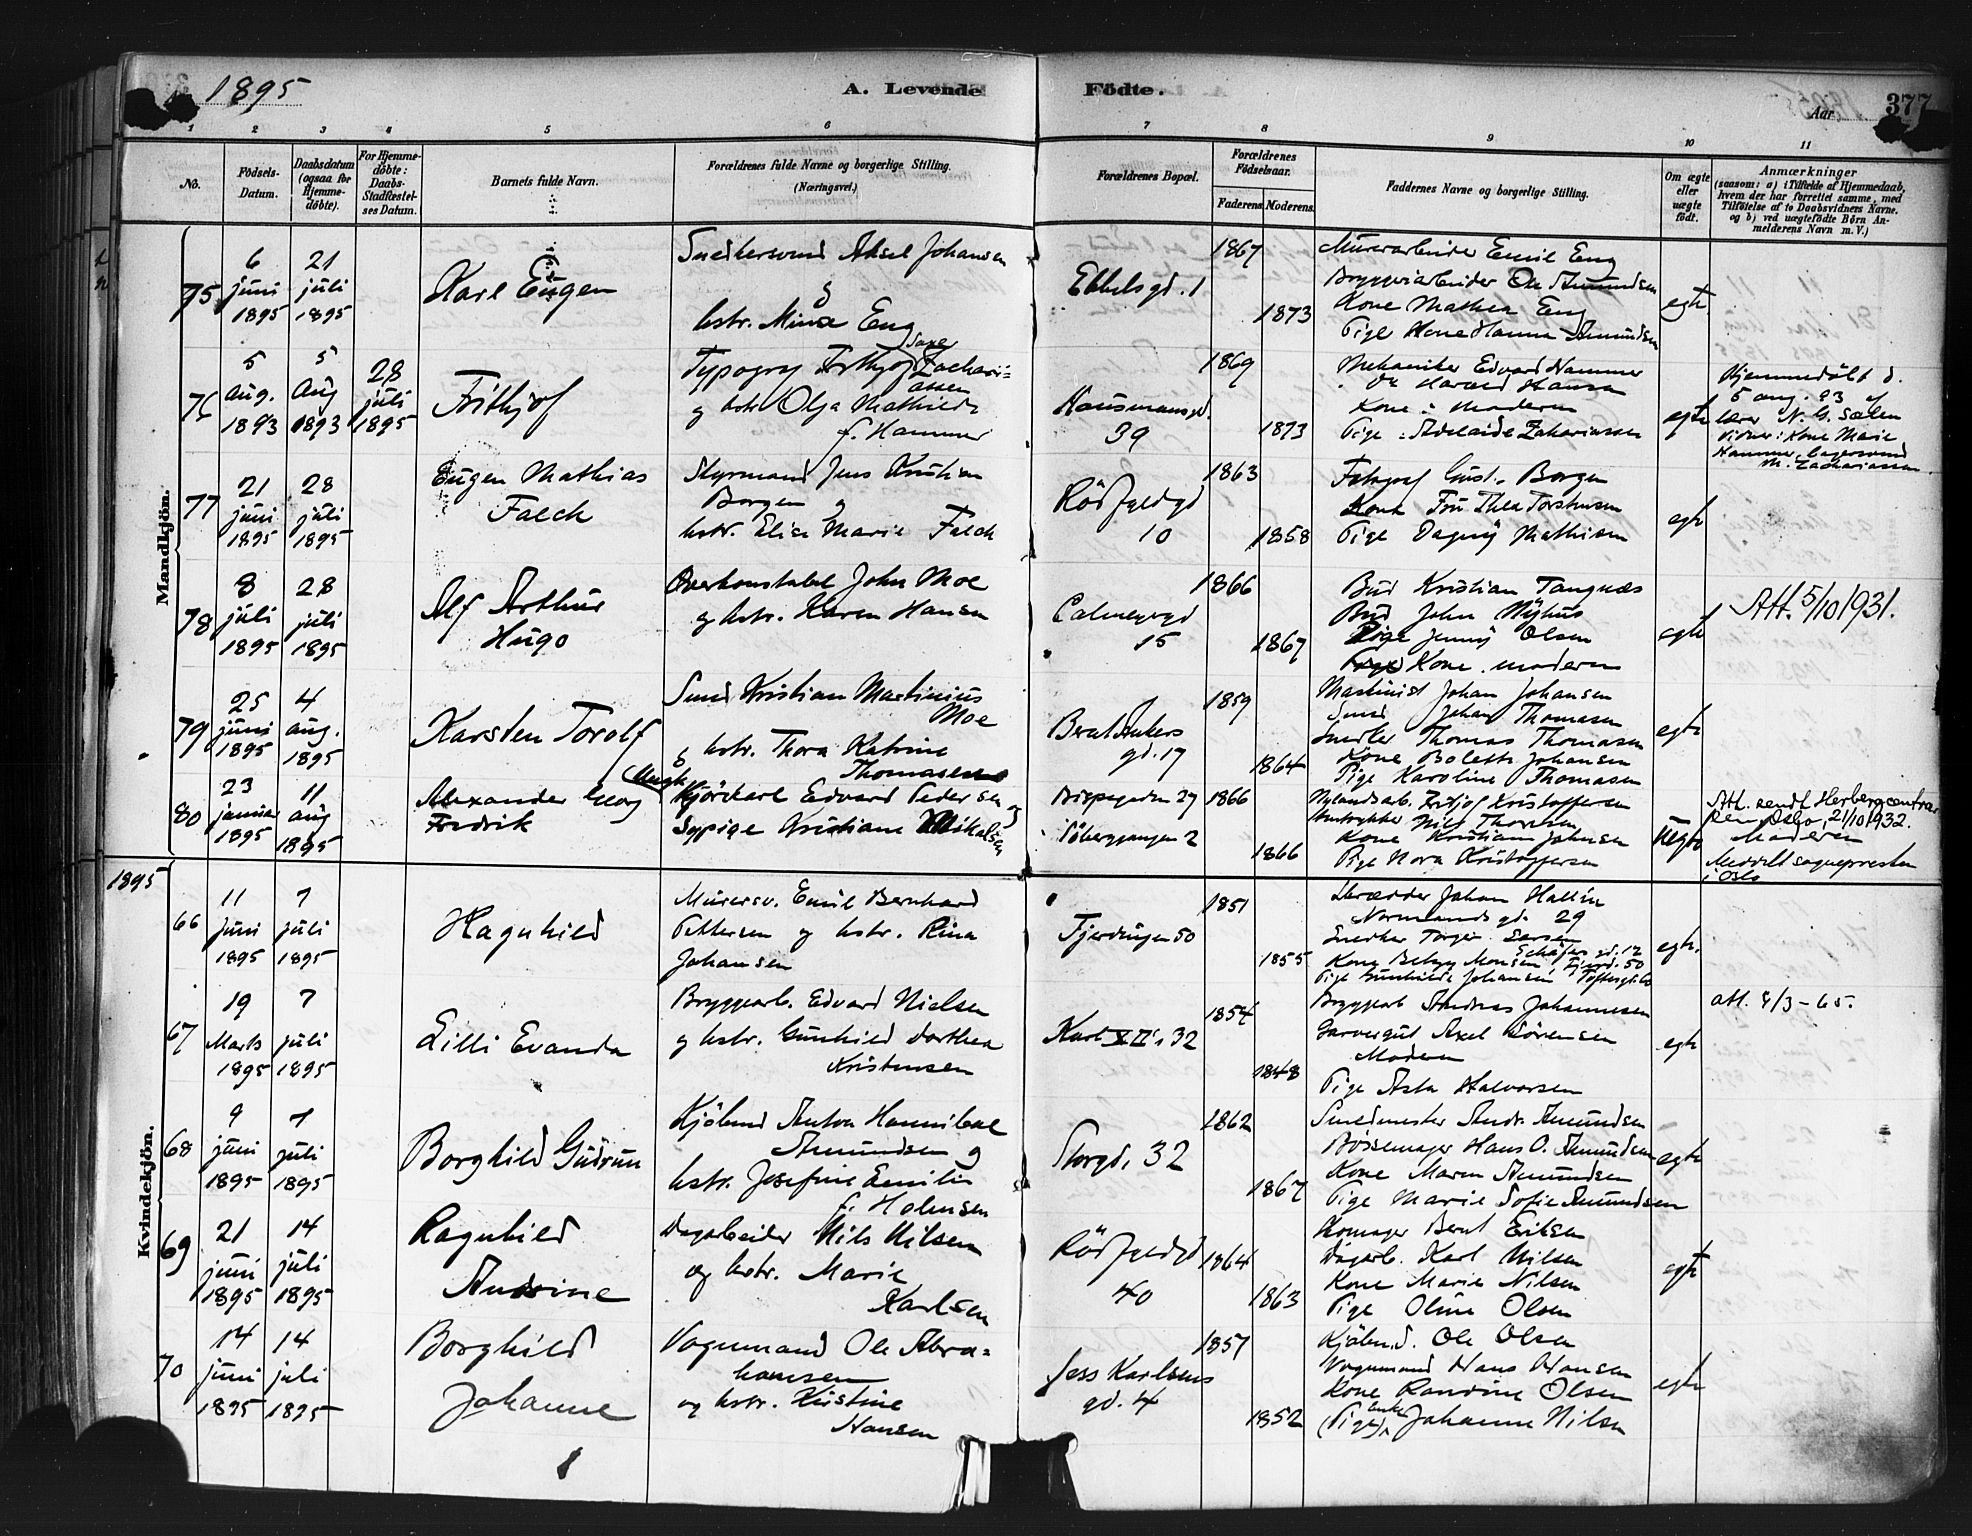 1895
A. Levende Födte.
Aar
377
1 2 3 4 5 6 7 8 9 10 11
No.
Födsels-Datum.
Daabsdatum (ogsaa for Hjemme-döbte).
For Hjemme-döbte: Daabs-Stadfæstel-ses Datum.
Barnets fulde Navn.
Forældrenes fulde Navne og borgerlige Stilling.
(Næringsvei.)
Forældrenes Bopæl.
Forældrenes Födselsaar.
Faderens. Moderens.
Faddernes Navne og borgerlige Stilling.
Om ægte eller uægte födt.
Anmærkninger
(saasom: a) i Tilfælde af Hjemmedaab, hvem der har forrettet samme, med Tilföielse af to Daabsvidners Navne, og b) ved uægtefödte Börn An-melderens Navn m. V.)
Mandkjön.
75
6 juni 1895
21 juli 1895
Karl Eugen
Snedkersvend Aksel Johansen
og
hstr. Mina Eng
Ebbelsgd. 1
1867
1873
Murerarbeider Emil Eng
Bryggeriarbeider Ole Amundsen
Kone Mathea Eng
Pige Hanna Amundsen
egte
76
5 aug. 1893
5 Aug 1893
28 juli 1895
Frithjof
Typograf Frithjof Zachari-
assen
og hstr. Olga Mathilde
f. Hammer
Hausmansgd.
39
1869
1873
Mekaniker Edvard Hammer
Harald Hansen
Kone : moderen
Pige : Adelaide Zakariassen
egte
Hjemmedøbt d.
5 aug. 93 af
lærer N. G. Sælen
Vidner: Kone Marie
Hammer,
M. Zachariassen
77
21 juni 1895
28 juli 1895
Eugen Mathias
Falck
Styrmand Jens Kristian
Borgen og
hstr. Elise Marie Falck
Rödfyldgd
10
1863
1858
Fotograf Gust. Borgen
Kone Fru Thea Torstensen
Pige Dagny Mathisen
egte
78
8 juli 1895
28 juli 1895
Alf Arthur
Hugo
Overkonstabel John Moe
og hstr. Karen Hansen
Calmeyergd
15
1866
1867
Bud Kristian Tangnæs
Bud John Nyhus
Pige Jenny Olsen
Kone moderen
egte
Att. 5/10 1931.
79
25 juni 1895
4 aug. 1895
Karsten Torolf
Smed Kristian Martinius
Moe
og hstr. Thora Katrine
Thomasen
Bernt Ankers
gd. 17
1859
1864
Maskinist Johan Johansen
Smed Johan Thomasen
Snedker Thomas Thomasen
Kone Bolette Johansen
Pige Karoline Thomasen
egte
80
23 januar 1895
11 aug 1895
Alexander Georg
Fredrik
Kjörekarl Edvard Pedersen og
Sypige Kristiane Mikalsen
Bispegaden 27
1866
1866
Nylandsarb. Fritjof Kristoffersen
Nils Thoresen
Kone Kristiane Johnsen
Pige Nora Kristoffersen
Uegte
Att. sendt Herbergcentralen
Oslo, 21/10 1932.
Moderen
Meddelt sogneprester
i Oslo
1895
Kvindekjön.
66
11 juni 1895
7 juli 1895
Ragnhild
Murersv. Emil Bernhard
Pettersen og hstr. Rina
Johansen
Fjerdingen 50
1851
1855
Skrædder Johan Hallin
Normandsgd. 29
Snedker Torger Larsen
Kone Betsy Monsen
Pige Gunhilde Johansen
egte.
67
19 Marts 1895
7 juli 1895
Lilli Evanda
Bryggarb. Edvard Nielsen
og hstr. Gunhild Dorthea
Kristensen
Karl XII's 32
1854
1848
Bryggarb Andreas Johannesen
Garversvd Axel Sörensen
Moderen
Pige Asta Halvorsen
egte
att. 8/3-65.
68
9 juni 1895
7 juli 1895
Borghild Gudrun
Kjöbmd Anton Hannibal
Amundsen og
hstr. Josefine Emilie
f. Holmsen
Storgd. 32
1862
1867
Smedmester Andr. Amundsen
Bössemager Hans O. Amundsen
Kone Maren Amundsen
Pige Marie Sofie Amundsen
egte
69
21 juni 1895
14 juli 1895
Ragnhild
Andrine
Dagarbeider Nils Nilsen
og hstr. Marie
Karlsen
Rödfyldgd
40
1864
1863
Skomager Bernt Eriksen
Dagarb. Karl Nilsen
Kone Marie Nilsen
Pige Oline Olsen
egte
70
14 juni 1895
14 juli 1895
Borghild
Johanne
Vognmand Ole Abra-
hamsen
og hstr. Kristine
Hansen
Jess Karlsens
gd. 4
1857
1852
Kjöbmd. Ole Olsen
Vognmand Hans Hansen
Kone Randine Olsen
(Pige) enke Johanne Nilsen
egte